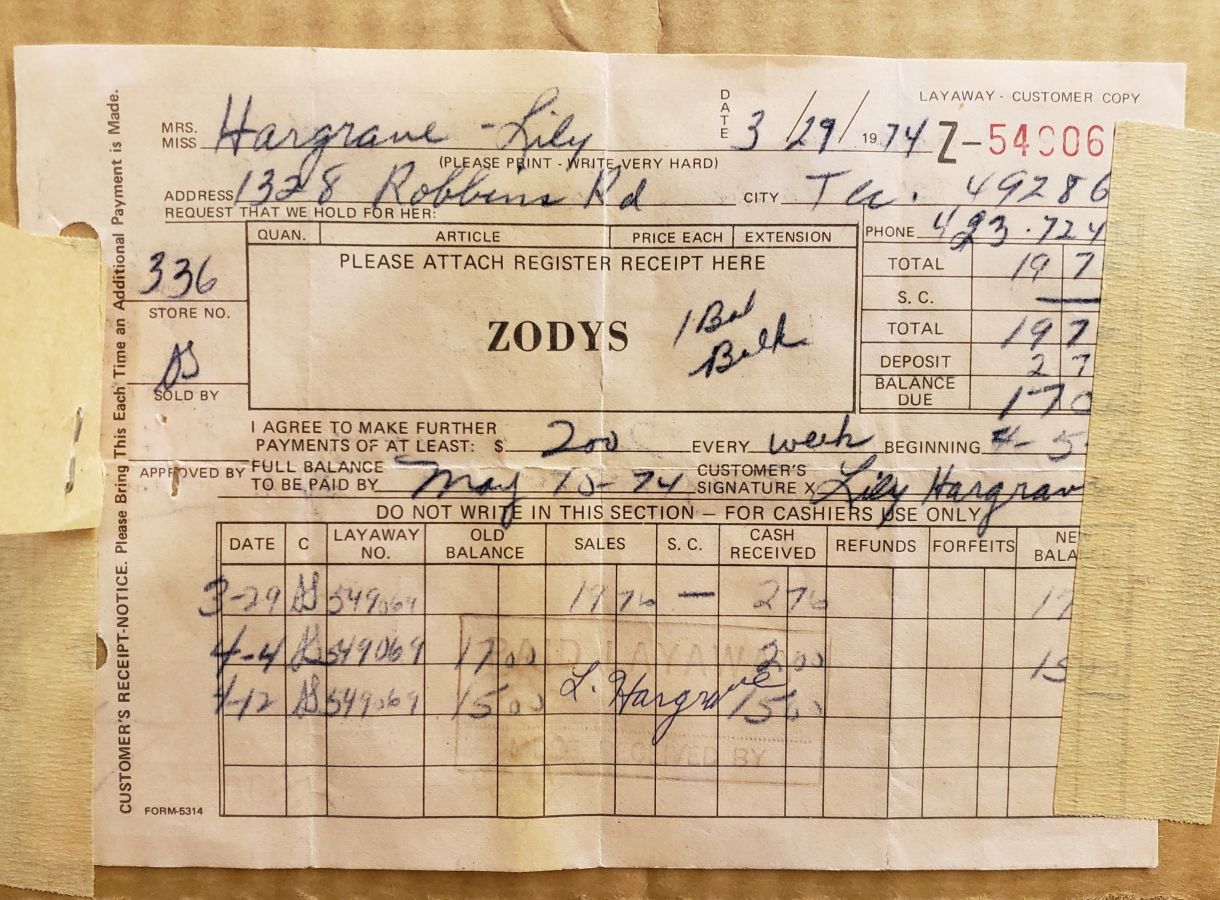 LAYAWAY - CUSTOMER COPY
DATE 3/29/1974 Z-54906
MRS. MISS Hargrave - Lily
(PLEASE PRINT - WRITE VERY HARD)
ADDRESS 1328 Robbins Rd CITY Tec. 49286
REQUEST THAT WE HOLD FOR HER:
PHONE 423-724
QUAN. ARTICLE PRICE EACH EXTENSION
PLEASE ATTACH REGISTER RECEIPT HERE
ZODYS
1 Bal
Bulk
336
STORE NO.
DS
SOLD BY
TOTAL 19 7
S. C. —
TOTAL 19 7
DEPOSIT 2 7
BALANCE DUE 17 0
I AGREE TO MAKE FURTHER
PAYMENTS OF AT LEAST: $ 200 EVERY week BEGINNING 4-5
APPROVED BY
FULL BALANCE
TO BE PAID BY May 10-74 CUSTOMER'S SIGNATURE X Lily Hargrav
DO NOT WRITE IN THIS SECTION — FOR CASHIERS USE ONLY
DATE C LAYAWAY NO. OLD BALANCE SALES S. C. CASH RECEIVED REFUNDS FORFEITS NE BALA
3-29 DS 549069 19 76 — 2 76 17
4-4 549069 17 00 2 00 15
4-12 DS 549069 15 00 15 00
L. Hargrave
PAID LAYAWAY
RECEIVED BY
FORM-5314
CUSTOMER'S RECEIPT-NOTICE. Please Bring This Each Time an Additional Payment is Made.